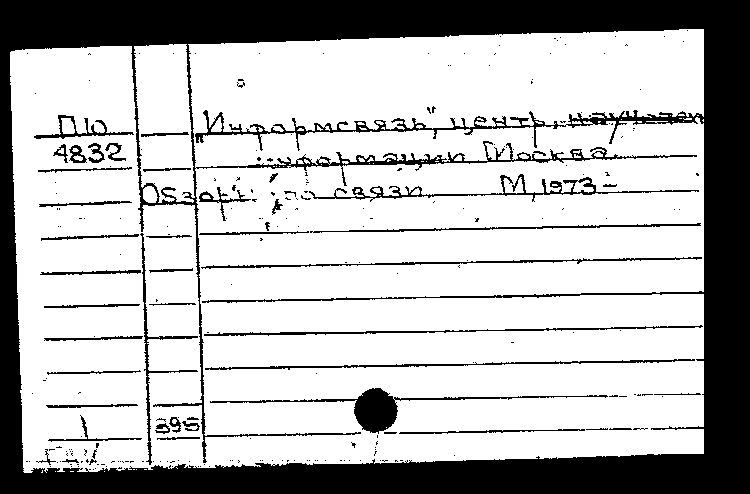 П10 "Информсвязь", центр.
4832 информации Москва.
Обзоры по связи М, 1973-
1 395